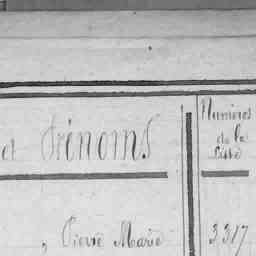 et Prénoms
Numéros
de la
Liste
, Pierre Marie
3317